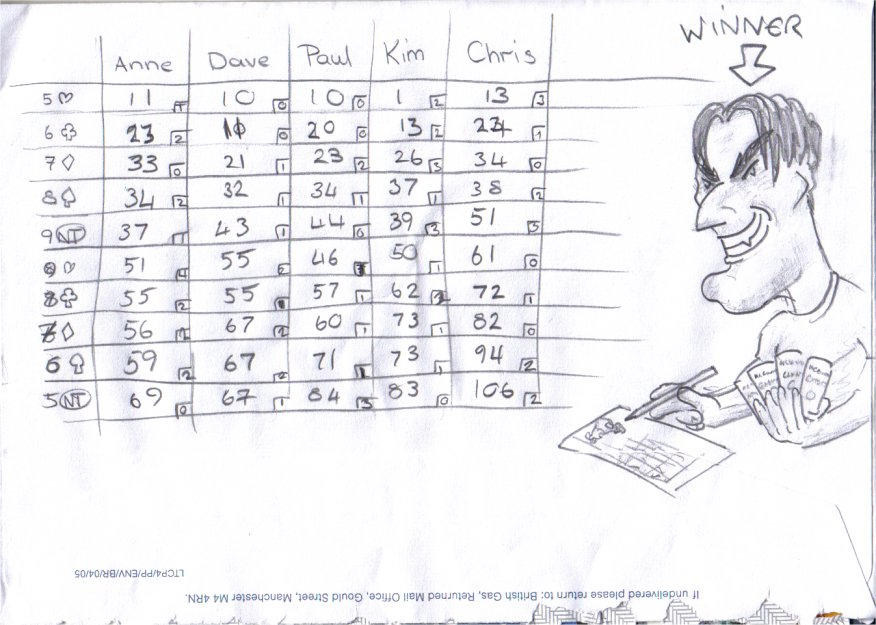 WINNER
Anne Dave Paul Kim Chris
5♡ 11 1 10 0 10 0 1 2 13 3
6♧ 23 2 0 20 0 13 2 1
7♢ 33 0 21 1 23 2 26 3 34 0
8♤ 34 2 32 1 34 1 37 1 38 2
9 NT 37 1 43 1 44 0 39 3 51 3
♡ 51 55 46 50 1 61 0
♧ 55 2 55 57 1 62 72 1
♢ 56 67 60 1 73 1 82 0
6♤ 59 2 67 71 73 1 94 2
5 NT 69 0 67 1 84 3 83 0 106 2
If undelivered please return to: British Gas, Returned Mail Office, Gould Street, Manchester M4 4RN.
LTCP4/PP/ENV/BR/04/05